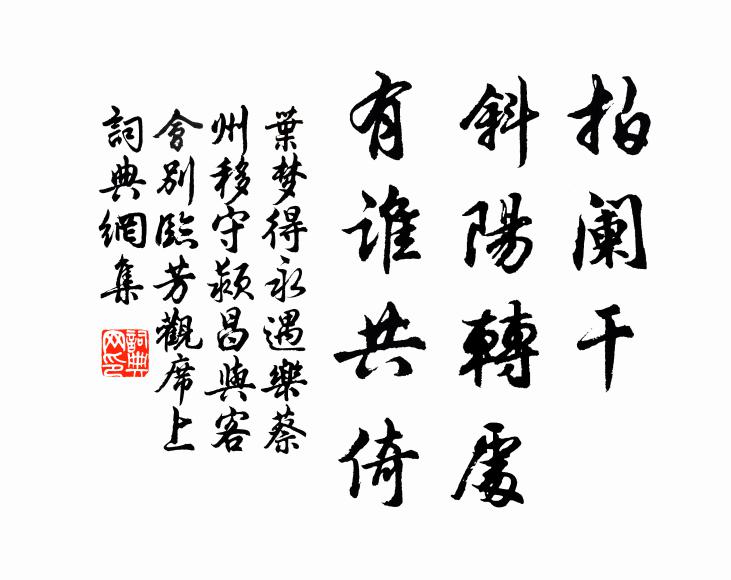 拍阑干
斜陽轉處
有誰共倚
葉梦得永遇樂蔡
州移守潁昌與客
會别臨芳觀席上
詞典網集
詞典
网印